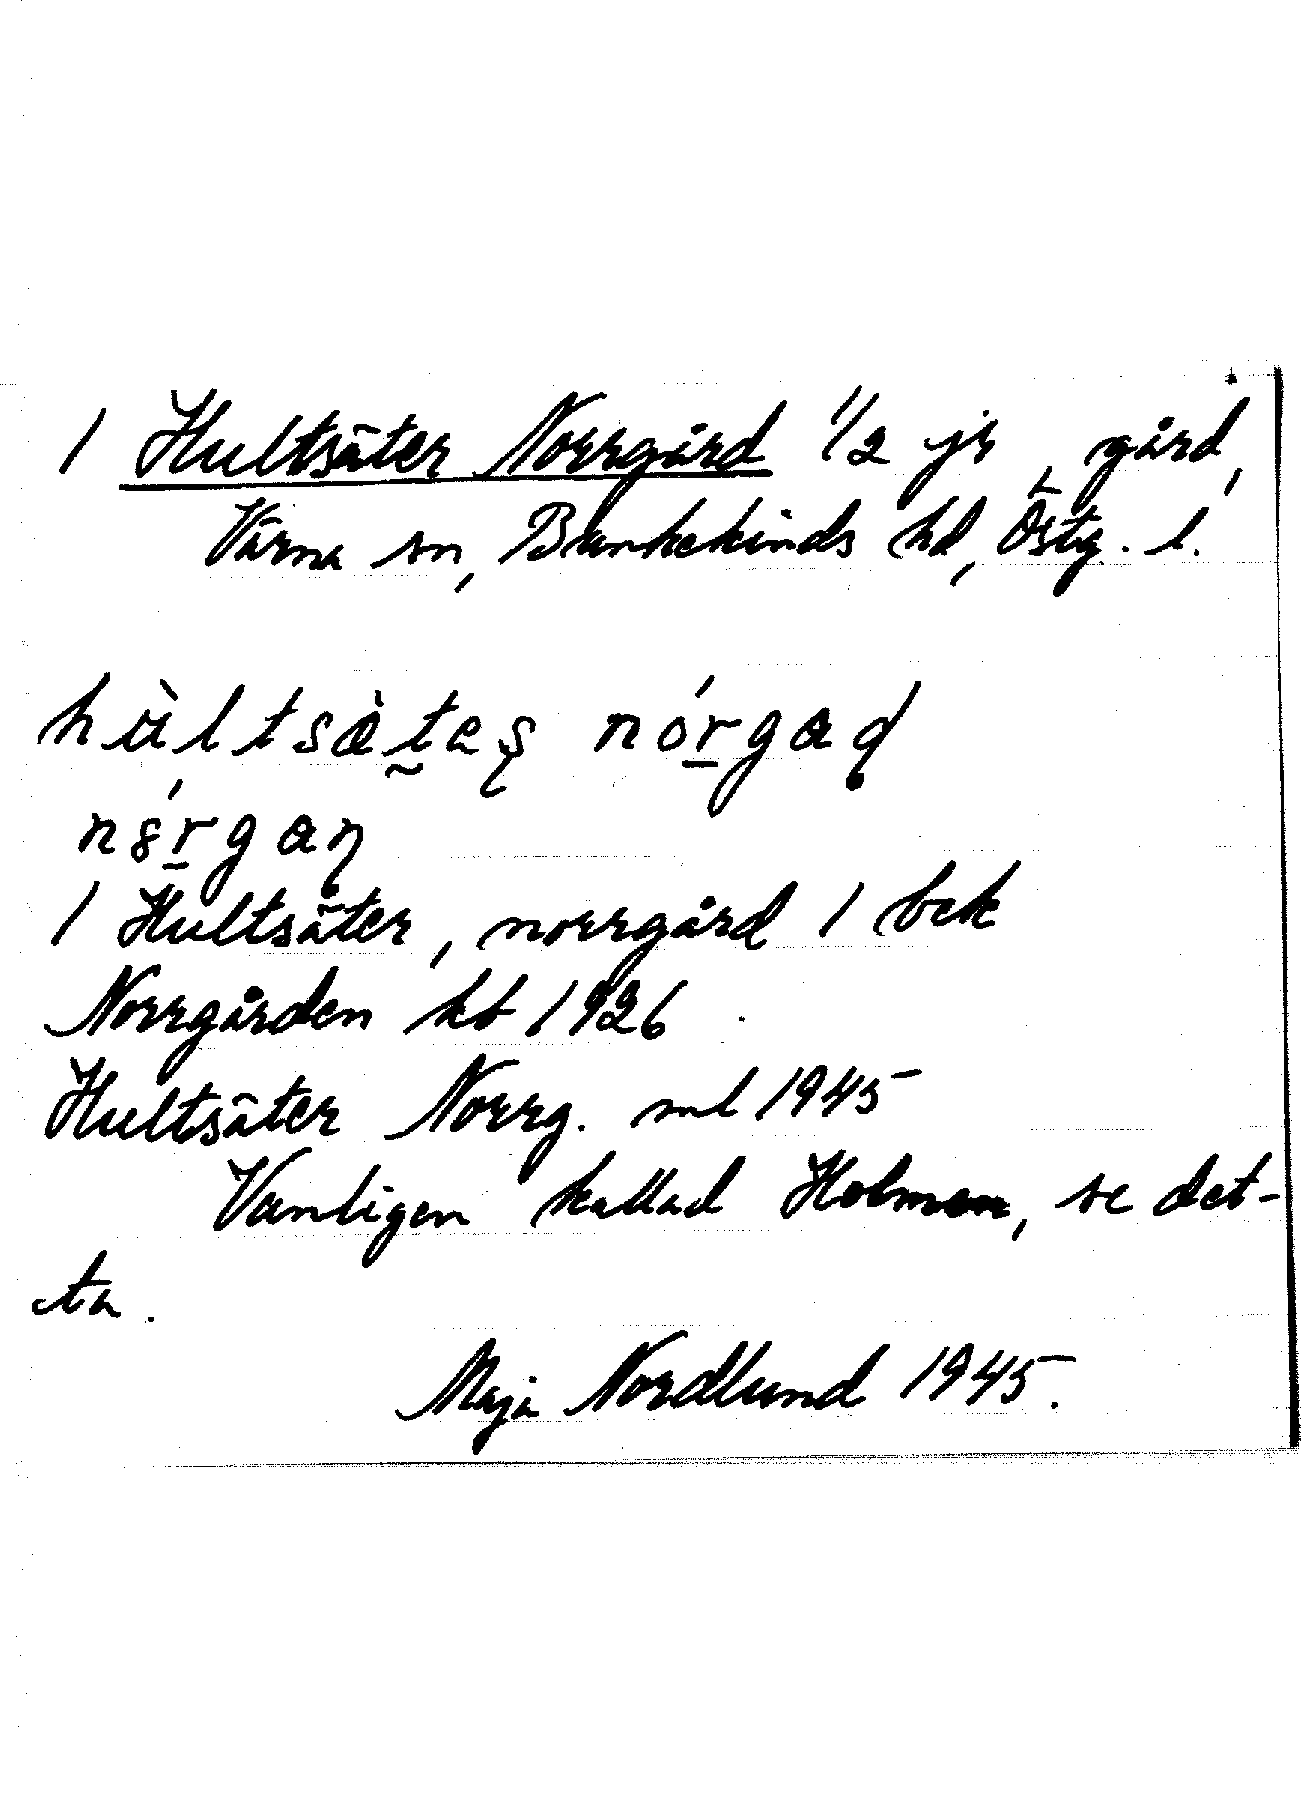 1 Hultsäter Norrgård 1/2 jr, gård,
Värna sn, Bankekinds hd, Östg. l.
hùltsæ̀tes nórgad
nórgan
1 Hultsäter, norrgård 1 bck
Norrgården kb 1926
Hultsäter Norrg. ml 1945
Vanligen kallad Holmen, se det-
ta.
Maja Nordlund 1945.